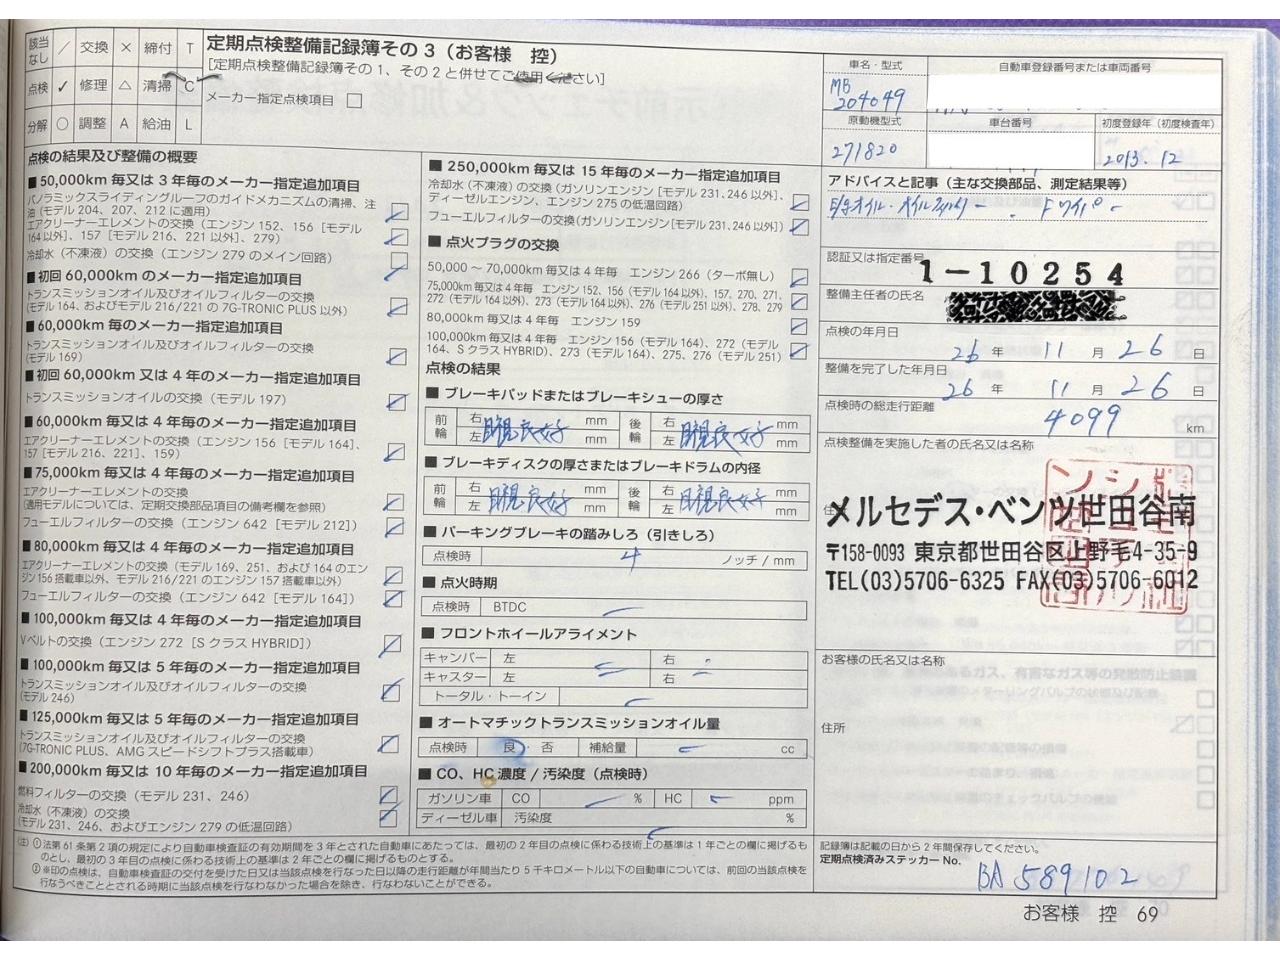 該当なし / 交換 × 締付 T
点検 ✓ 修理 △ 清掃 C
分解 ○ 調整 A 給油 L
定期点検整備記録簿その3（お客様 控）
[定期点検整備記録簿その1、その2と併せてご使用ください]
メーカー指定点検項目 □
点検の結果及び整備の概要
■ 50,000km 毎又は 3 年毎のメーカー指定追加項目
パノラミックスライディングルーフのガイドメカニズムの清掃、注
油（モデル 204、207、212 に適用）
エアクリーナーエレメントの交換（エンジン 152、156［モデル
164以外］、157［モデル 216、221 以外］、279）
冷却水（不凍液）の交換（エンジン 279 のメイン回路）
■ 初回 60,000km のメーカー指定追加項目
トランスミッションオイル及びオイルフィルターの交換
（モデル 164、およびモデル 216/221 の 7G-TRONIC PLUS 以外）
■ 60,000km 毎のメーカー指定追加項目
トランスミッションオイル及びオイルフィルターの交換
（モデル 169）
■ 初回 60,000km 又は 4 年毎のメーカー指定追加項目
トランスミッションオイルの交換（モデル 197）
■ 60,000km 毎又は 4 年毎のメーカー指定追加項目
エアクリーナーエレメントの交換（エンジン 156［モデル 164］、
157［モデル 216、221］、159）
■ 75,000km 毎又は 4 年毎のメーカー指定追加項目
エアクリーナーエレメントの交換
（適用モデルについては、定期交換部品項目の備考欄を参照）
フューエルフィルターの交換（エンジン 642［モデル 212］）
■ 80,000km 毎又は 4 年毎のメーカー指定追加項目
エアクリーナーエレメントの交換（モデル 169、251、および 164 のエン
ジン 156 搭載車以外、モデル 216/221 のエンジン 157 搭載車以外）
フューエルフィルターの交換（エンジン 642［モデル 164］）
■ 100,000km 毎又は 4 年毎のメーカー指定追加項目
V ベルトの交換（エンジン 272［S クラス HYBRID］）
■ 100,000km 毎又は 5 年毎のメーカー指定追加項目
トランスミッションオイル及びオイルフィルターの交換
（モデル 246）
■ 125,000km 毎又は 5 年毎のメーカー指定追加項目
トランスミッションオイル及びオイルフィルターの交換
（7G-TRONIC PLUS、AMG スピードシフトプラス搭載車）
■ 200,000km 毎又は 10 年毎のメーカー指定追加項目
燃料フィルターの交換（モデル 231、246）
冷却水（不凍液）の交換
（モデル 231、246、およびエンジン 279 の低温回路）
■ 250,000km 毎又は 15 年毎のメーカー指定追加項目
冷却水（不凍液）の交換（ガソリンエンジン［モデル 231、246 以外］、
ディーゼルエンジン、エンジン 275 の低温回路）
フューエルフィルターの交換（ガソリンエンジン［モデル 231、246 以外］）
■ 点火プラグの交換
50,000 ～ 70,000km 毎又は 4 年毎 エンジン 266（ターボ無し）
75,000km 毎又は 4 年毎 エンジン 152、156（モデル 164 以外）、157、270、271、
272（モデル 164 以外）、273（モデル 164 以外）、276（モデル 251 以外）、278、279
80,000km 毎又は 4 年毎 エンジン 159
100,000km 毎又は 4 年毎 エンジン 156（モデル 164）、272（モデル
164、S クラス HYBRID）、273（モデル 164）、275、276（モデル 251）
点検の結果
■ ブレーキパッドまたはブレーキシューの厚さ
前輪 右 mm 後輪 右 mm
左 目視良好 mm 左 目視良好 mm
■ ブレーキディスクの厚さまたはブレーキドラムの内径
前輪 右 mm 後輪 右 mm
左 目視良好 mm 左 目視良好 mm
■ パーキングブレーキの踏みしろ（引きしろ）
点検時 4 ノッチ / mm
■ 点火時期
点検時 BTDC
■ フロントホイールアライメント
キャンバー 左 右
キャスター 左 右
トータル・トーイン
■ オートマチックトランスミッションオイル量
点検時 良・否 補給量 cc
■ CO、HC 濃度 / 汚染度（点検時）
ガソリン車 CO % HC ppm
ディーゼル車 汚染度 %
（注）①法第 61 条第 2 項の規定により自動車検査証の有効期間を 3 年とされた自動車にあたっては、最初の 2 年目の点検に係わる技術上の基準は 1 年ごとの欄に掲げるも
のとし、最初の 3 年目の点検に係わる技術上の基準は 2 年ごとの欄に掲げるものとする。
②※印の点検は、自動車検査証の交付を受けた日又は当該点検を行なった日以降の走行距離が年間当たり 5 千キロメートル以下の自動車については、前回の当該点検を
行なうべきこととされる時期に当該点検を行なわなかった場合を除き、行なわないことができる。
車名・型式
MB
204049
自動車登録番号または車両番号
原動機型式
271820
車台番号
初度登録年（初度検査年）
2013.12
アドバイスと記事（主な交換部品、測定結果等）
認証又は指定番号
1-10254
整備主任者の氏名
点検の年月日
26 年 11 月 26 日
整備を完了した年月日
26 年 11 月 26 日
点検時の総走行距離
4099 km
点検整備を実施した者の氏名又は名称
メルセデス・ベンツ世田谷南
〒158-0093 東京都世田谷区上野毛4-35-9
TEL(03)5706-6325 FAX(03)5706-6012
お客様の氏名又は名称
住所
記録簿は記載の日から 2 年間保存してください。
定期点検済みステッカー No.
BA 589102
お客様 控 69